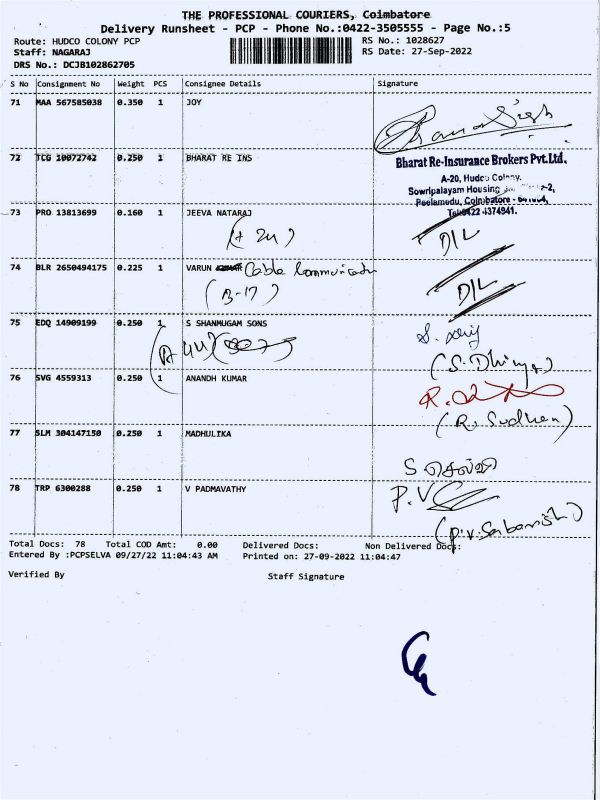 THE PROFESSIONAL COURIERS, Coimbatore
Delivery Runsheet - PCP - Phone No.:0422-3505555 - Page No.:5
Route: HUDCO COLONY PCP RS No.: 1028627
Staff: NAGARAJ RS Date: 27-Sep-2022
DRS No.: DCJB102862705
S No Consignment No Weight PCS Consignee Details Signature
71 MAA 567585038 0.350 1 JOY
72 TCG 10072742 0.250 1 BHARAT RE INS
Bharat Re-Insurance Brokers Pvt.Ltd.
A-20, Hudco Colony,
Sowripalayam Housing
Peelamedu, Coimbatore -
73 PRO 13813699 0.160 1 JEEVA NATARAJ
D/L
74 BLR 2650494175 0.225 1 VARUN Cable Communication
(B-17) D/L
75 EDQ 14909199 0.250 1 S SHANMUGAM SONS
76 SVG 4559313 0.250 1 ANANDH KUMAR
77 SLM 304147150 0.250 1 MADHULIKA
78 TRP 6300288 0.250 1 V PADMAVATHY
P.V
Total Docs: 78 Total COD Amt: 0.00 Delivered Docs: Non Delivered Docs:
Entered By :PCPSELVA 09/27/22 11:04:43 AM Printed on: 27-09-2022 11:04:47
Verified By Staff Signature